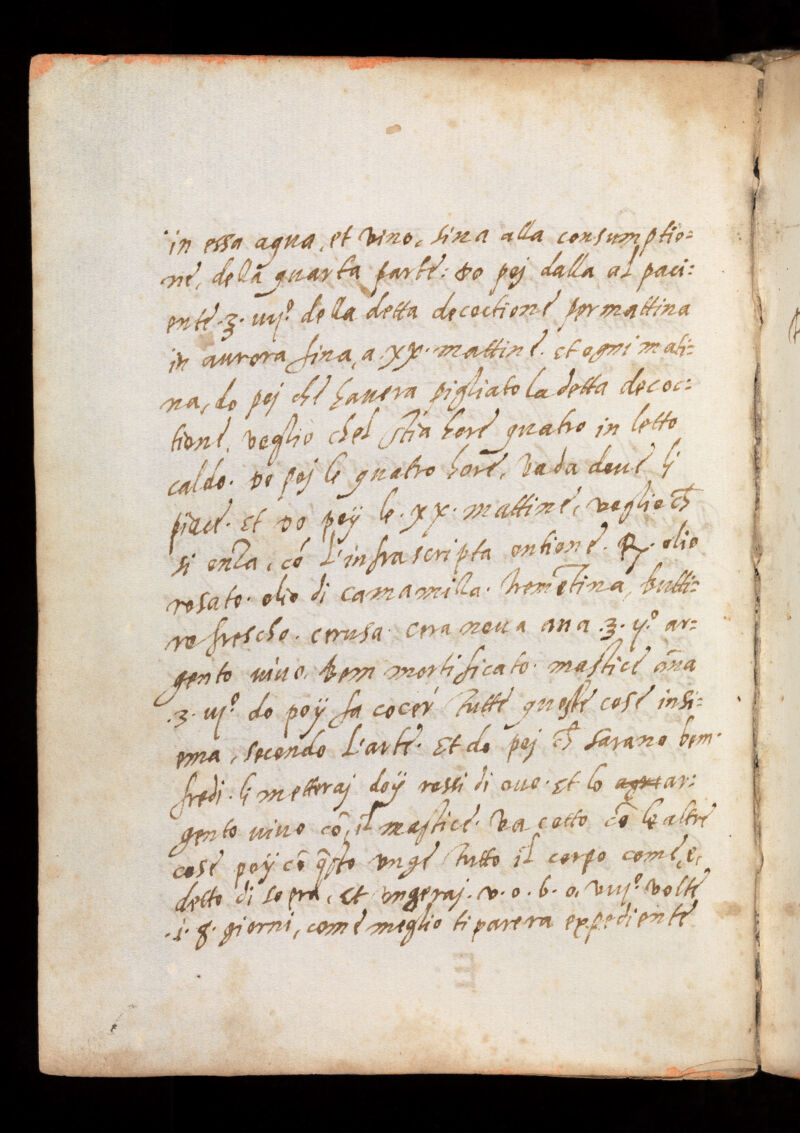 in essa aqua, et vino, sina alla consumptio=
ne, dela quarta parte: do poj dalla al paci:
ente .ʒ. iiijº della detta decoctione per mattina
in aurora sina, a .xx. mattine. et ogni mati:
na, do poj che havera pigliato la detta decoc:
tione, veglio chel stia hore quatro in letto
caldo. do poj le quatro hore, vada dove li
piace. et do poÿ le .xx. mattine, veglio ch̄
si onta, có l'infrascripta ontione. ℞. olio
rosato. olio di camamilla. trementina, butti:
ro frescho. cerusa. cera nova ana .ʒ. ijº ar=
gento vivo, bem mortificato. mastice ana
.ʒ. iijº do poÿ fa cocer tutte queste cose insi:
ema, secondo l'arte. et do poj ch̄ sarano bem
fredi. li metteraj doÿ rossi di ovo. et lo ar:
gento vivo cō, il mastice. va cotto cō le altre
cose poÿ cō q̄sto unge tutto il corpo come, e,
detto di sopra, et ungeraj. v. o. 6. o, viijº volte
.i. 8. giorni, come meglio ti parera expediente